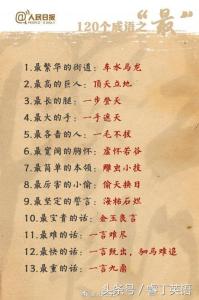 人民日报
PEOPLE'S DAILY
120个成语之“最”
1.最繁华的街道：车水马龙
2.最高的巨人：顶天立地
3.最长的腿：一步登天
4.最大的手：一手遮天
5.最吝啬的人：一毛不拔
6.最宽阔的胸怀：虚怀若谷
7.最简单的本领：雕虫小技
8.最厉害的小偷：偷天换日
9.最坚定的誓言：海枯石烂
10.最宝贵的话：金玉良言
11.最难的话：一言难尽
12.最快的话：一言既出，驷马难追
13.最重的话：一言九鼎